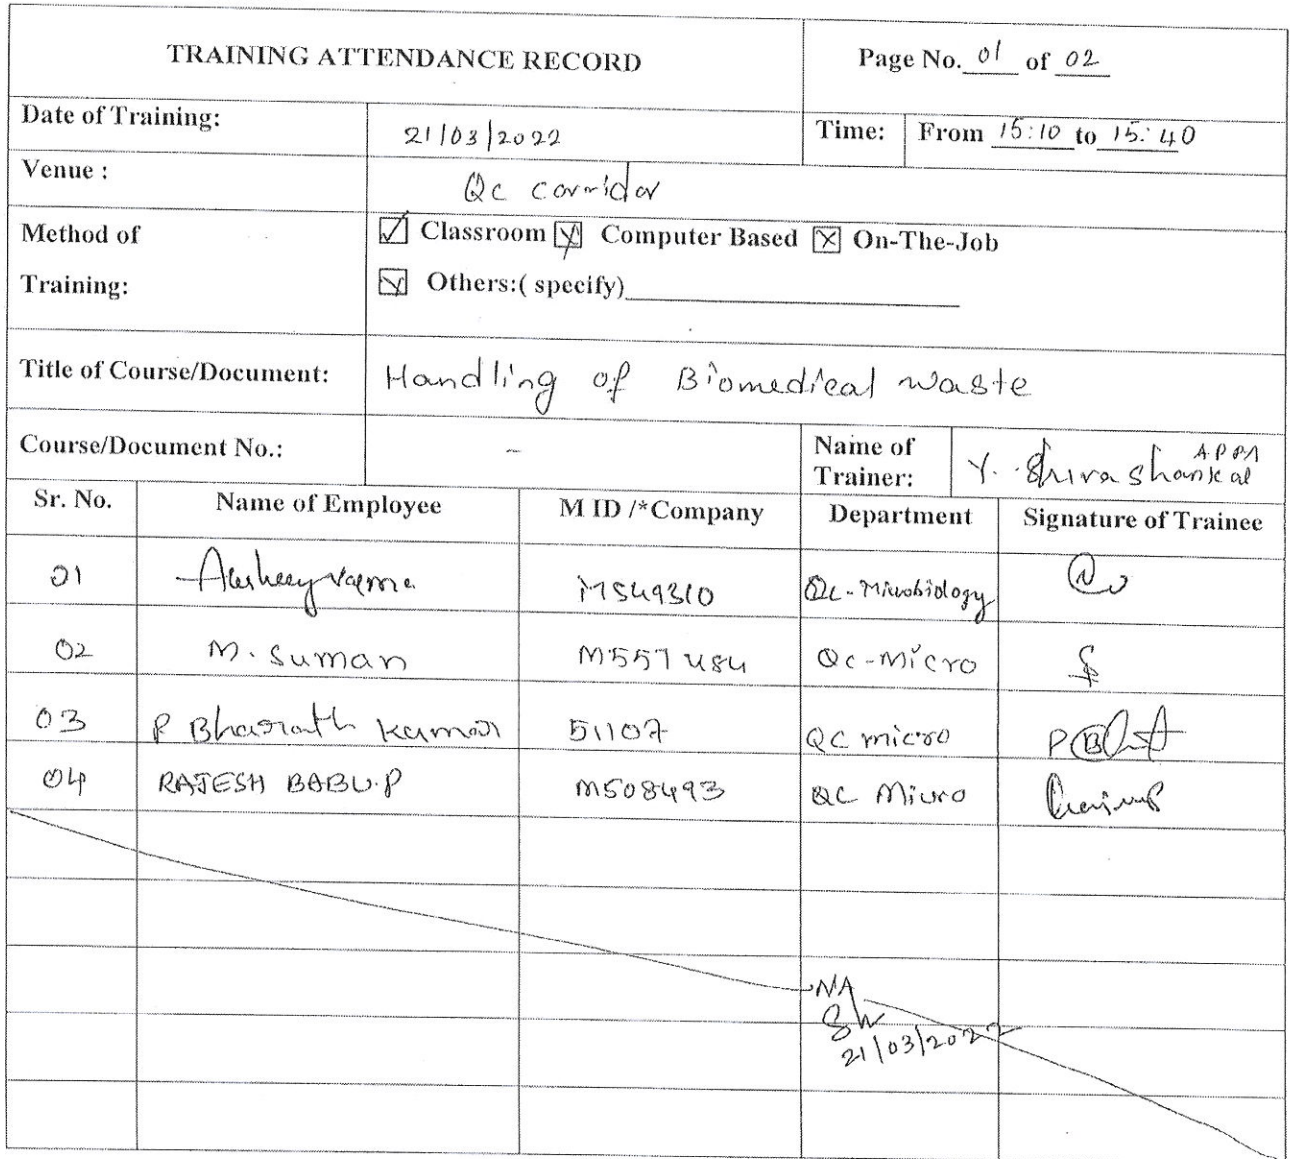 TRAINING ATTENDANCE RECORD Page No. 01 of 02
Date of Training: 21/03/2022 Time: From 15:10 to 15:40
Venue : Qc corridor
Method of ☑ Classroom ☒ Computer Based ☒ On-The-Job
Training: ☒ Others:( specify)
Title of Course/Document: Handling of Biomedical waste
Course/Document No.: - Name of Trainer: Y. Shivashankar
Sr. No. Name of Employee M ID /*Company Department Signature of Trainee
01 M549310 Qc-Microbiology
02 M. Suman M557484 Qc-Micro
03 P Bharath Kumar 51107 QC micro
04 RAJESH BABU.P M508493 QC Micro
NA
21/03/2022